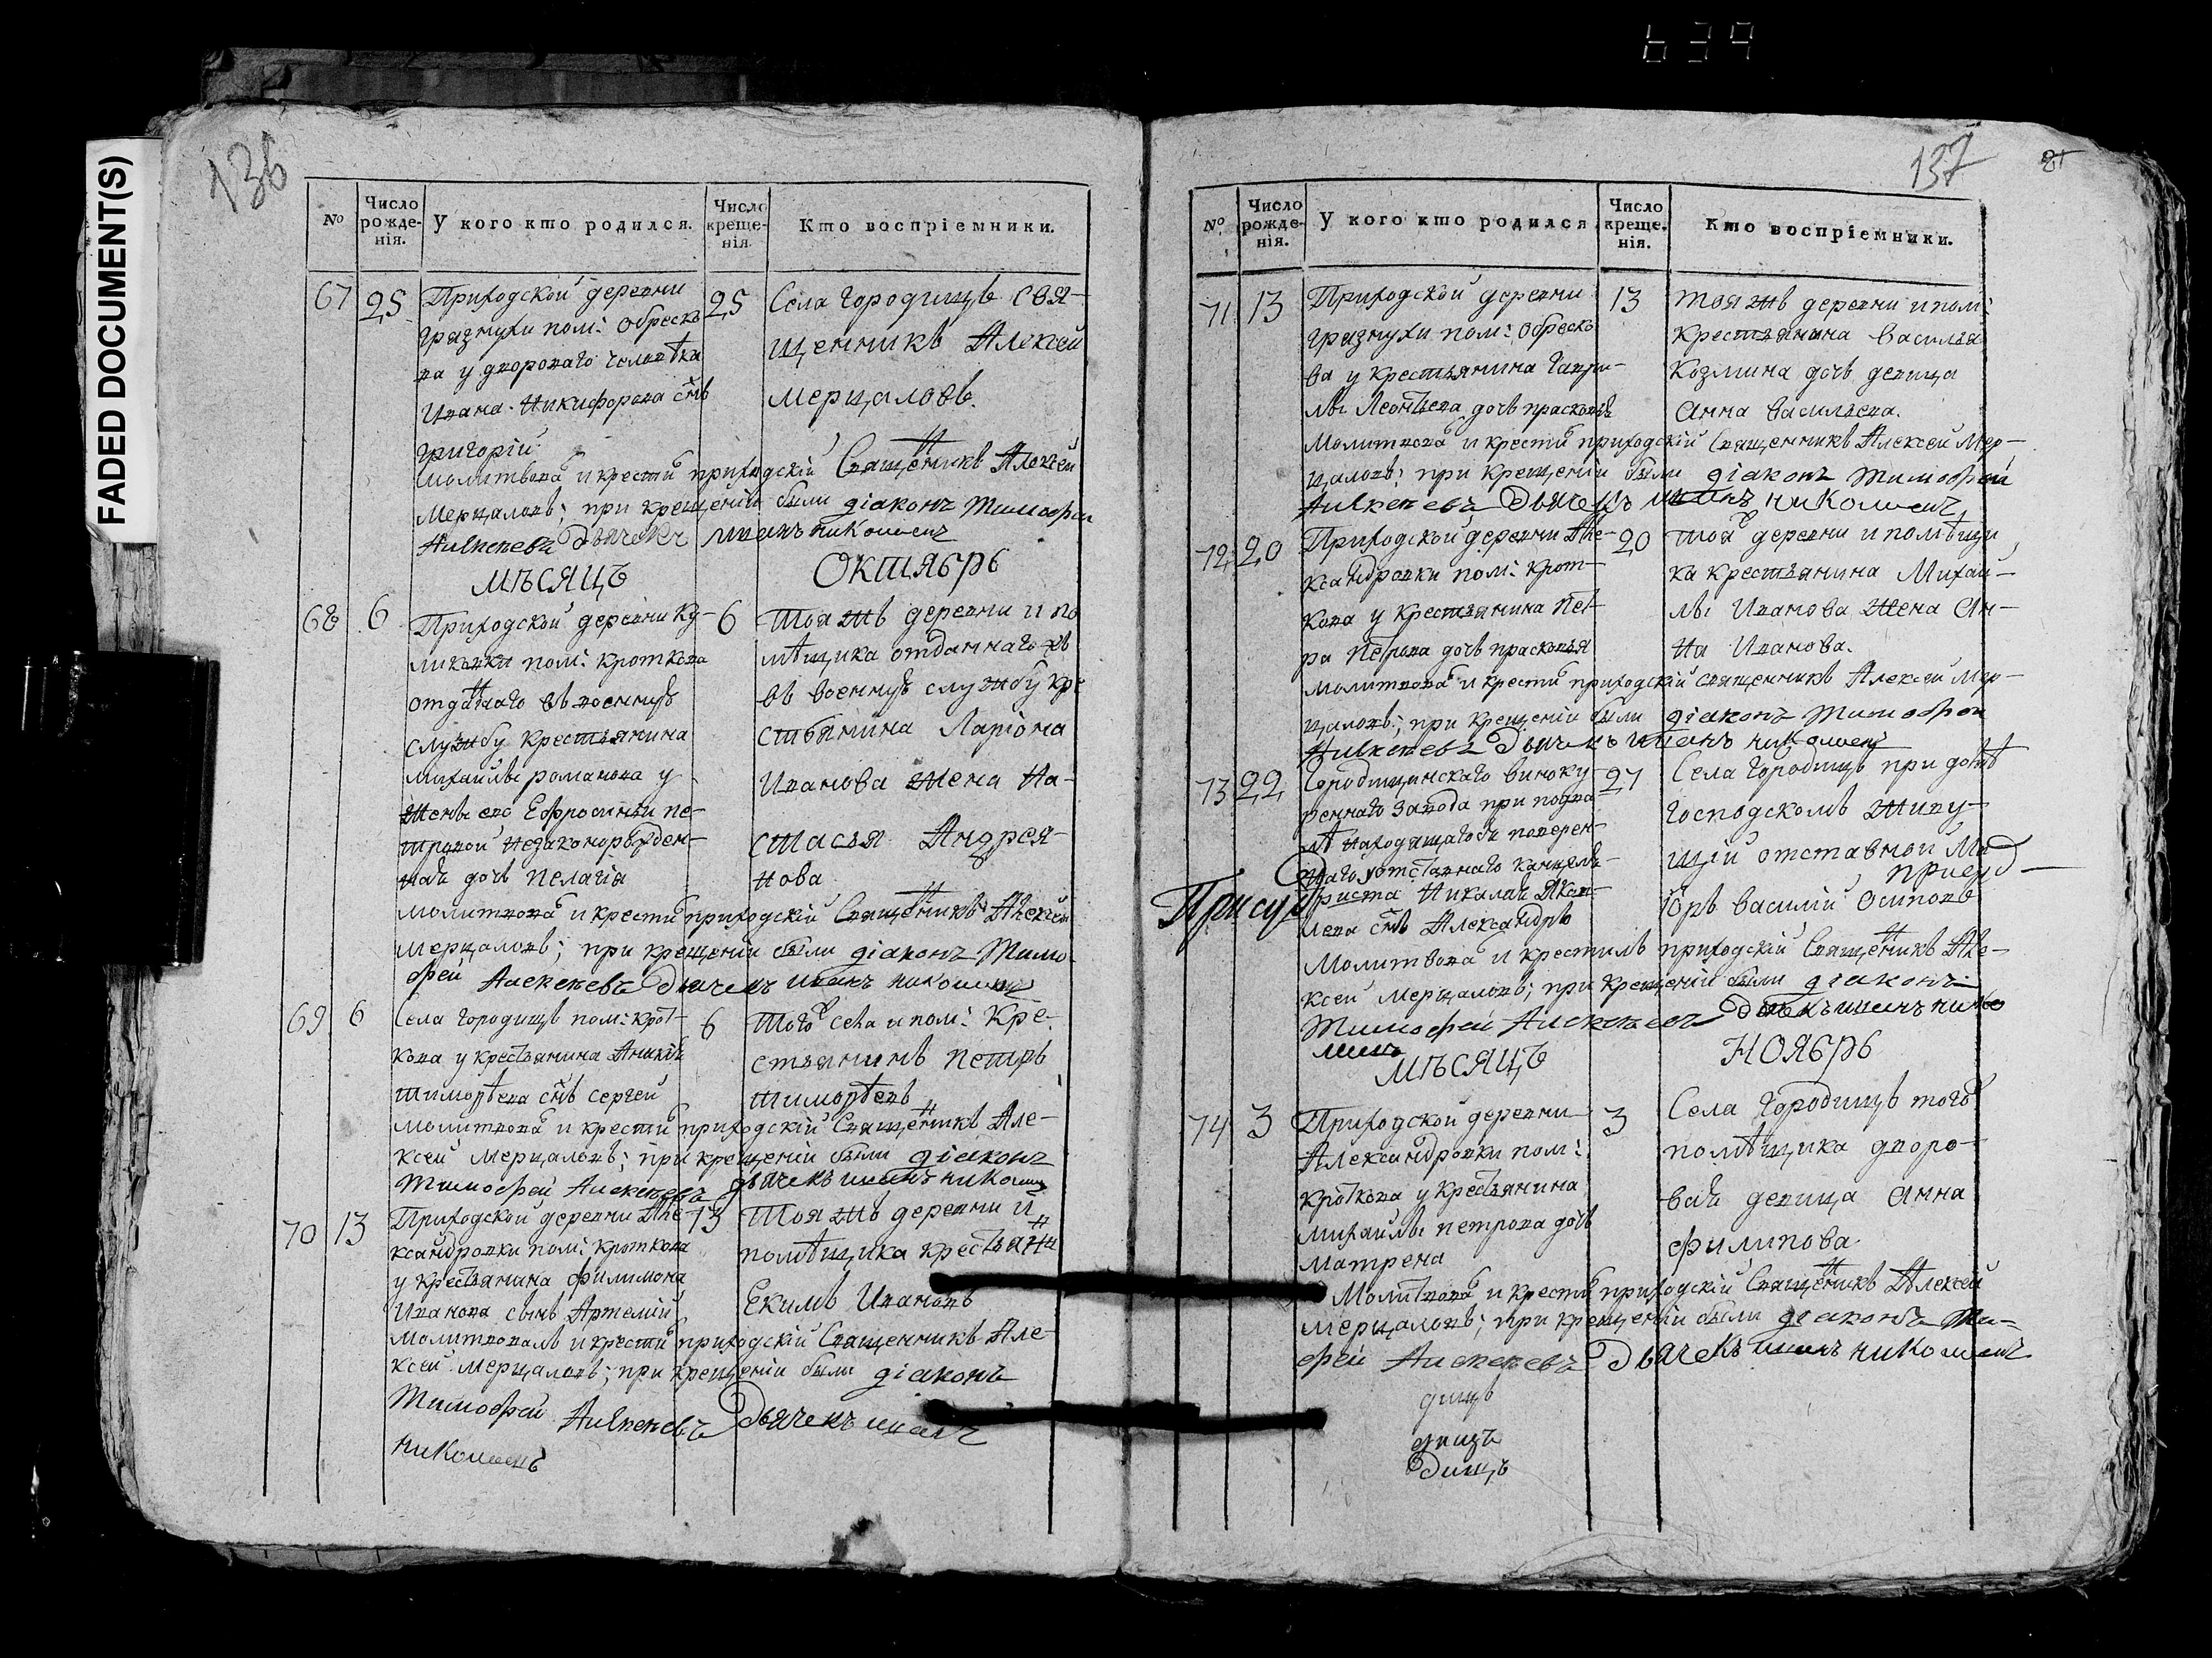 639
FADED DOCUMENT(S)
136
№
Число рожденія.
У кого кто родился.
Число крещенія
Кто воспріемники.
67
25
Приходской деревни
грязнухи пом: Обреско
ва у двороваго человѣка
Ивана Никифорова снъ
григорій
25
Села Городищъ свя-
щенникъ Алексей
мерцаловъ.
молитвова и крести приходскій Священикъ Алексей
Мерцаловъ; при крещеніи были діаконъ Тимофеи
Алексеевъ дьячекъ
МѢСЯЦЪ
ОКТЯБРЬ
68
6
Приходской деревни Ку-
ликовки пом: кроткова
отданаго въ военнуъ
службу крестьянина
михайлы романова у
жены его Ефросиньи пе-
тровой незаконорожден-
ная дочь пелагія
6
Тоя жъ деревни и по
мѣщика отданнаго
въ военнуъ службу кре
стьянина Ларіона
Иванова жена На-
стасья Андрея-
нова
молитвова и крести приходскій Священикъ Алексей
мерцаловъ; при крещеніи были діаконъ Тимо-
фей Алексеевъ дьячекъ
69
6
Села городищъ пом: крот-
кова у крестьянина
тимофѣева снъ сергей
6
Того села и пом: Кре-
стьянинъ петръ
тимофѣевъ
молитвова и крести приходскій Священикъ Але-
ксей мерцаловъ; при крещеніи были діаконъ
Тимофей Алексеевъ дьячекъ
70
13
Приходской деревни Але-
ксандровки пом: кроткова
у крестьянина филимона
Иванова сынъ Артемій
13
Тоя жъ деревни и
помѣщика крестьянинъ
Екимъ Ивановъ
молитвовалъ и крести приходскій Священникъ Але-
ксей мерцаловъ; при крещеніи были діаконъ
Тимофей Алексеевъ Дьячекъ иванъ
137
№
Число рожденія.
У кого кто родился
Число крещенія.
Кто воспріемники.
71
13
Приходской деревни
грязнухи пом: обреско
ва у крестьянина гаври-
лы Леонтьева дочь
13
тоя жъ деревни и пом:
крестьянина Василья
Козмина дочь девица
Анна васильева.
Молитвова и крести приходскій Священникъ Алексей Мер-
цаловъ; при крещеніи были діаконъ Тимофей
Алексеевъ Дьячекъ
72
20
Приходской деревни Але-
ксандровки пом: крот-
кова у крестьянина Пет-
ра петрова дочь прасковья
20
тоя деревни и помѣщи
ка крестьянина Михай-
лы Иванова жена Ан-
на Иванова.
молитвова и крести приходскій священникъ Алексей Мер-
цаловъ; при крещеніи были діаконъ Тимофеи
Алексеевъ Дьячекъ иванъ
73
22
Городищинскаго виноку-
реннаго завода при подва
лѣ находящагося поверен-
наго отставнаго канцеля-
риста Николая
лева снъ Александръ
27
Села Городищъ при домѣ
господскомъ живу-
щій отставной Ма
Приезд
іоръ василий Осиповъ
Присуд
Молитвова и крестилъ приходскій Священикъ Але-
ксей Мерцаловъ; при крещеніи были діаконъ
Тимофей Алексеевъ
МѢСЯЦЪ
НОЯБРЬ
74
3
Приходской деревни
Александровки пом:
кроткова у крестьянина
михайлы петрова дочь
матрена
3
Села Городищъ тогоъ
помѣщика дворо-
вая девица Анна
филипова
Молитвова и крести приходскій Священикъ Алексей
мерцаловъ; при крещеніи были діаконъ Ти-
фей Алексеевъ Дьячекъ
дищъ
дищъ